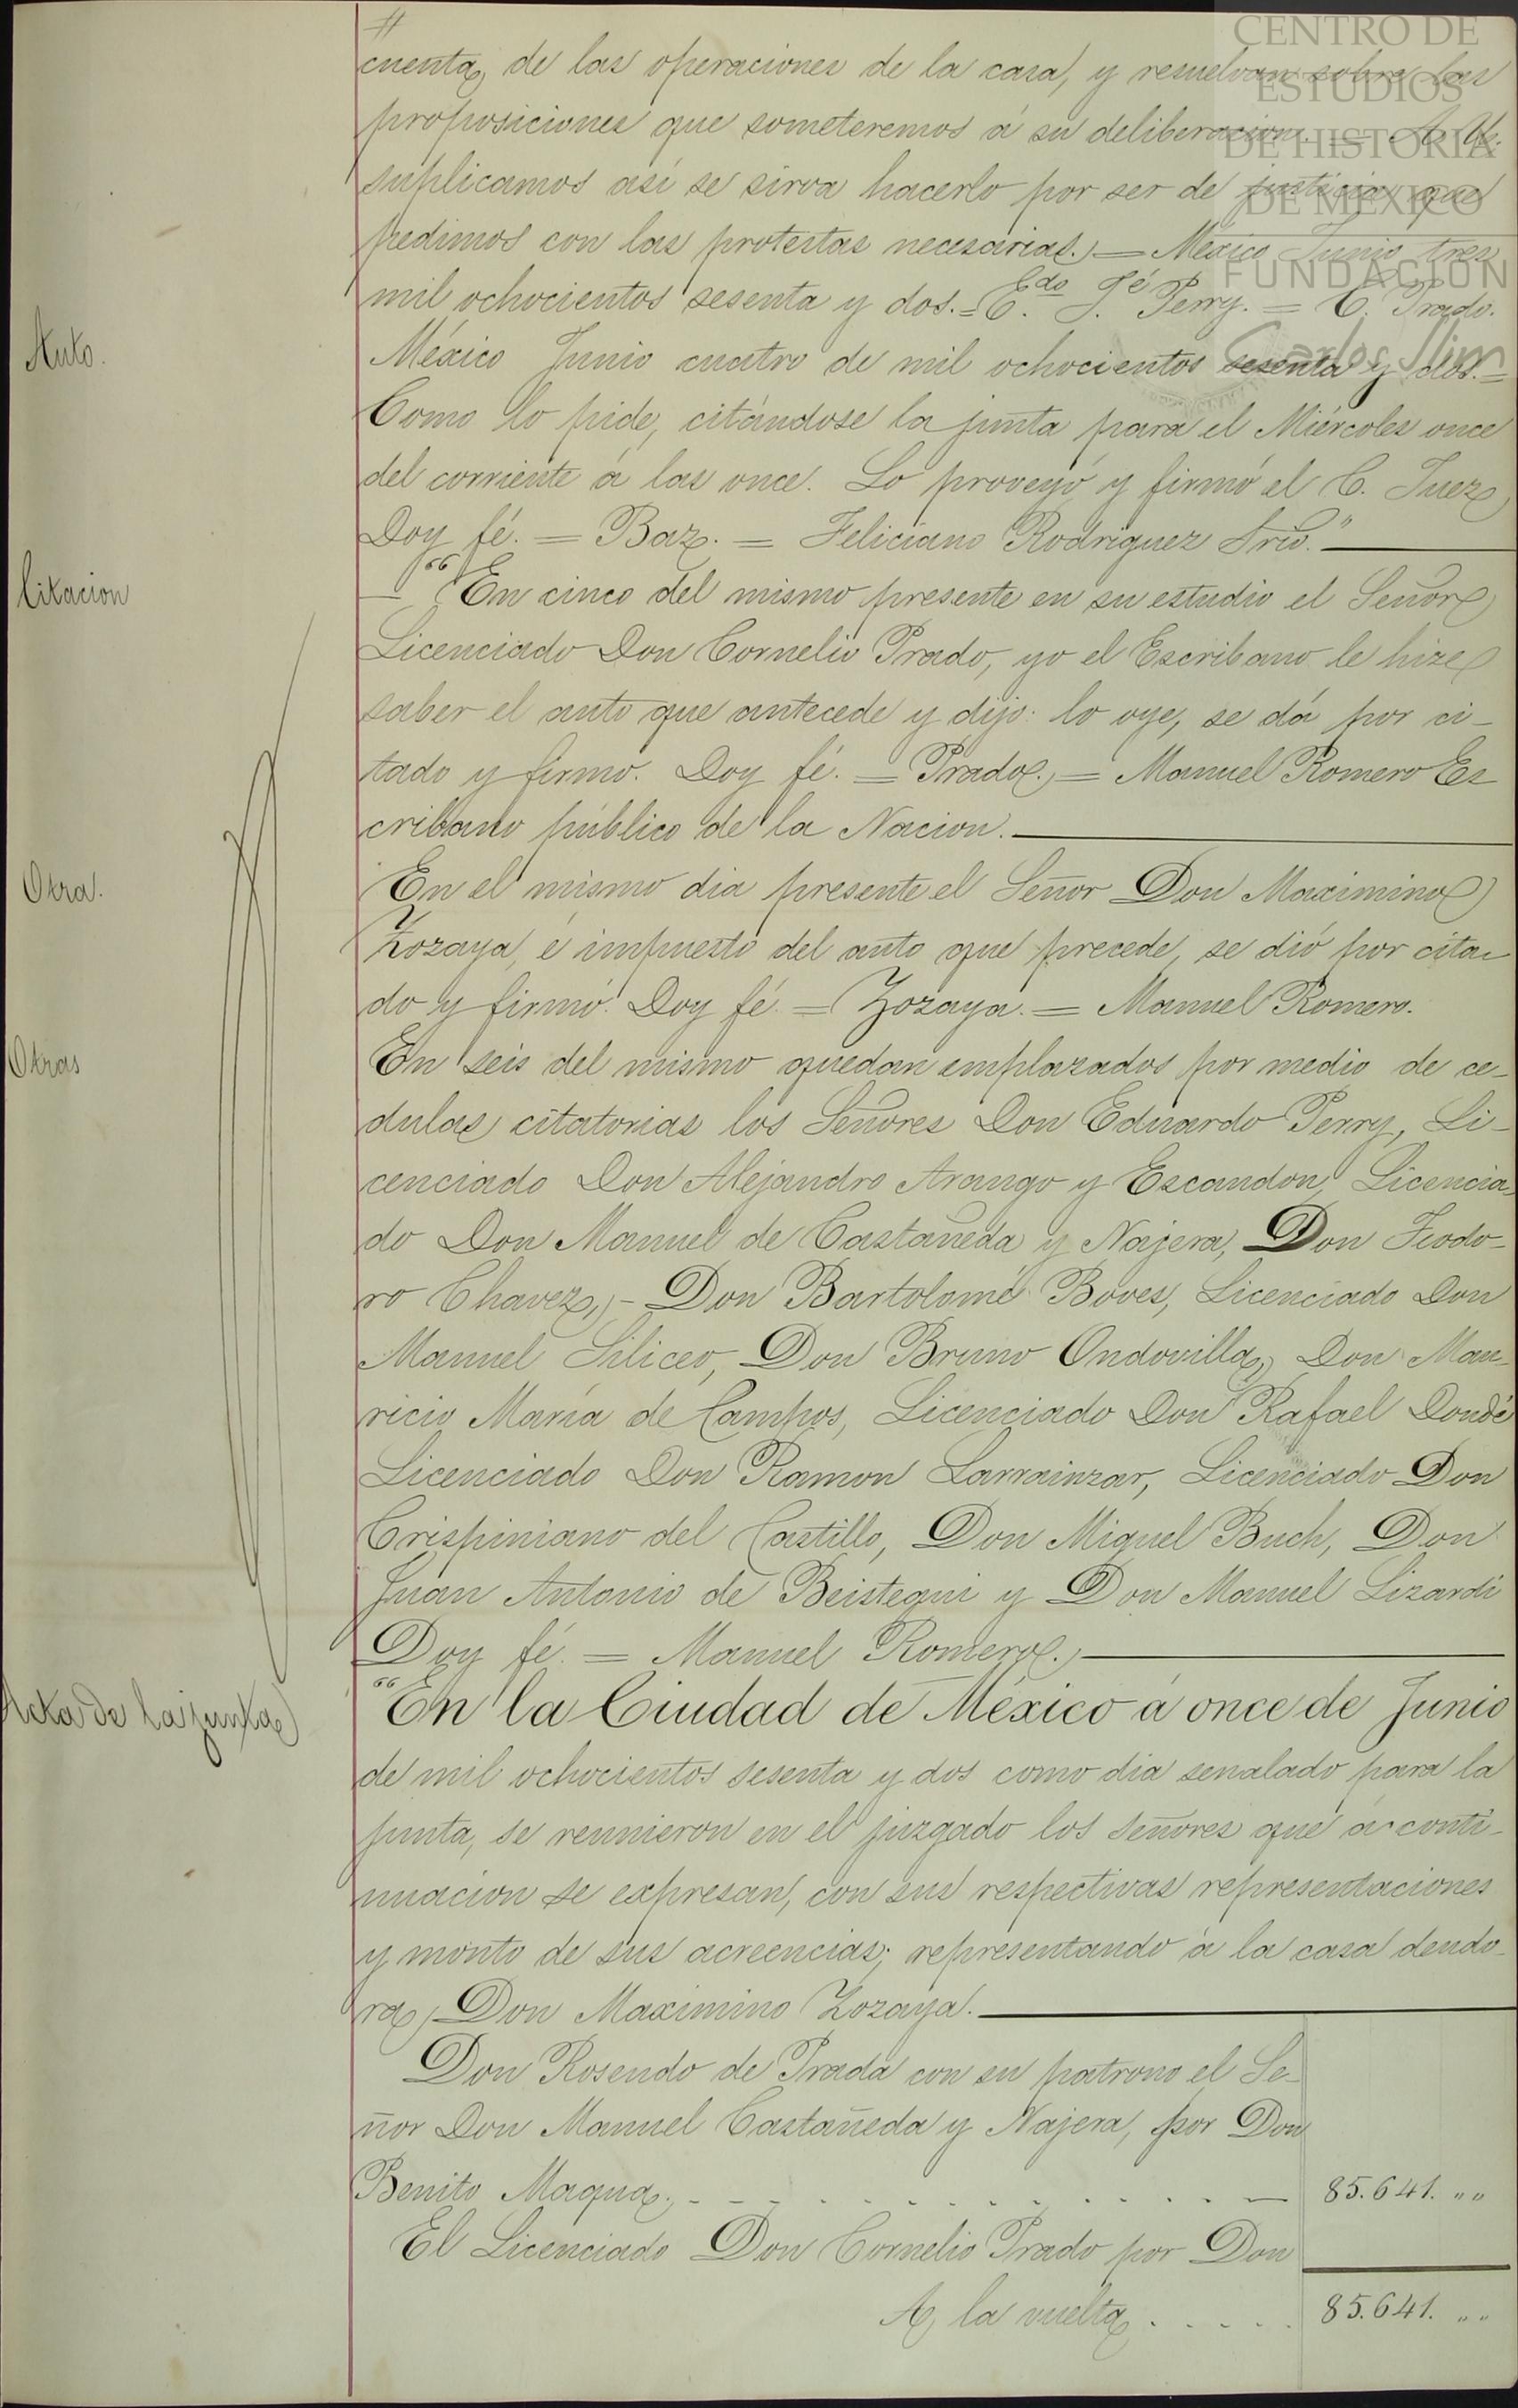 cuenta, de las operaciones de la casa, y resuelvan sobre las
proposiciones que someteremos á su deliberacion. — A V.
suplicamos así se sirva hacerlo por ser de justicia que
pedimos con las protestas necesarias. = México Junio tres
mil ochocientos sesenta y dos. = Edo. J. Perry. = C. Prado.
Auto.
México Junio cuatro de mil ochocientos sesenta y dos. =
Como lo pide, citándose la junta para el Miércoles once
del corriente á las once. Lo proveyó y firmó el C. Juez
Doy fé. = Baz. = Feliciano Rodriguez Srio."
Citacion
"En cinco del mismo presente en su estudio el Señor
Licenciado Don Cornelio Prado, yo el Escribano le hize
saber el auto que antecede y dijo: lo oye, se dá por ci-
tado y firmo. Doy fé. = Prado. = Manuel Romero Es
cribano público de la Nacion.
Otra.
En el mismo dia presente el Señor Don Maximino
Zozaya, é impuesto del auto que precede, se dió por cita-
do y firmó. Doy fé. = Zozaya. = Manuel Romero.
Otras
En seis del mismo quedan emplazados por medio de ce-
dulas citatorias los Señores Don Eduardo Perry, Li-
cenciado Don Alejandro Arango y Escandon, Licencia-
do Don Manuel de Castañeda y Najera, Don Teodo-
ro Chavez, - Don Bartolomé Boves, Licenciado Don
Manuel Siliceo, Don Bruno Ondovilla, Don Mau-
ricio María de Campos, Licenciado Don Rafael Dondé
Licenciado Don Ramon Larrainzar, Licenciado Don
Crispiniano del Castillo, Don Miguel Buch, Don
Juan Antonio de Beistegui y Don Manuel Lizardi
Doy fé. = Manuel Romero.
Acta de la junta
"En la Ciudad de México á once de Junio
de mil ochocientos sesenta y dos como dia señalado para la
junta, se reunieron en el juzgado los señores que á conti-
nuacion se expresan, con sus respectivas representaciones
y monto de sus acreencias; representando á la casa deudo-
ra, Don Maximino Zozaya.
Don Rosendo de Prada con su patrono el Se-
ñor Don Manuel Castañeda y Najera, por Don
Benito Maqua. - - - - - - - - - - - - - - - 85.641. ,, ,,
El Licenciado Don Cornelio Prado por Don
A la vuelta . . . . . 85.641. ,, ,,
CENTRO DE
ESTUDIOS
DE HISTORIA
DE MEXICO
FUNDACIÓN
Carlos Slim